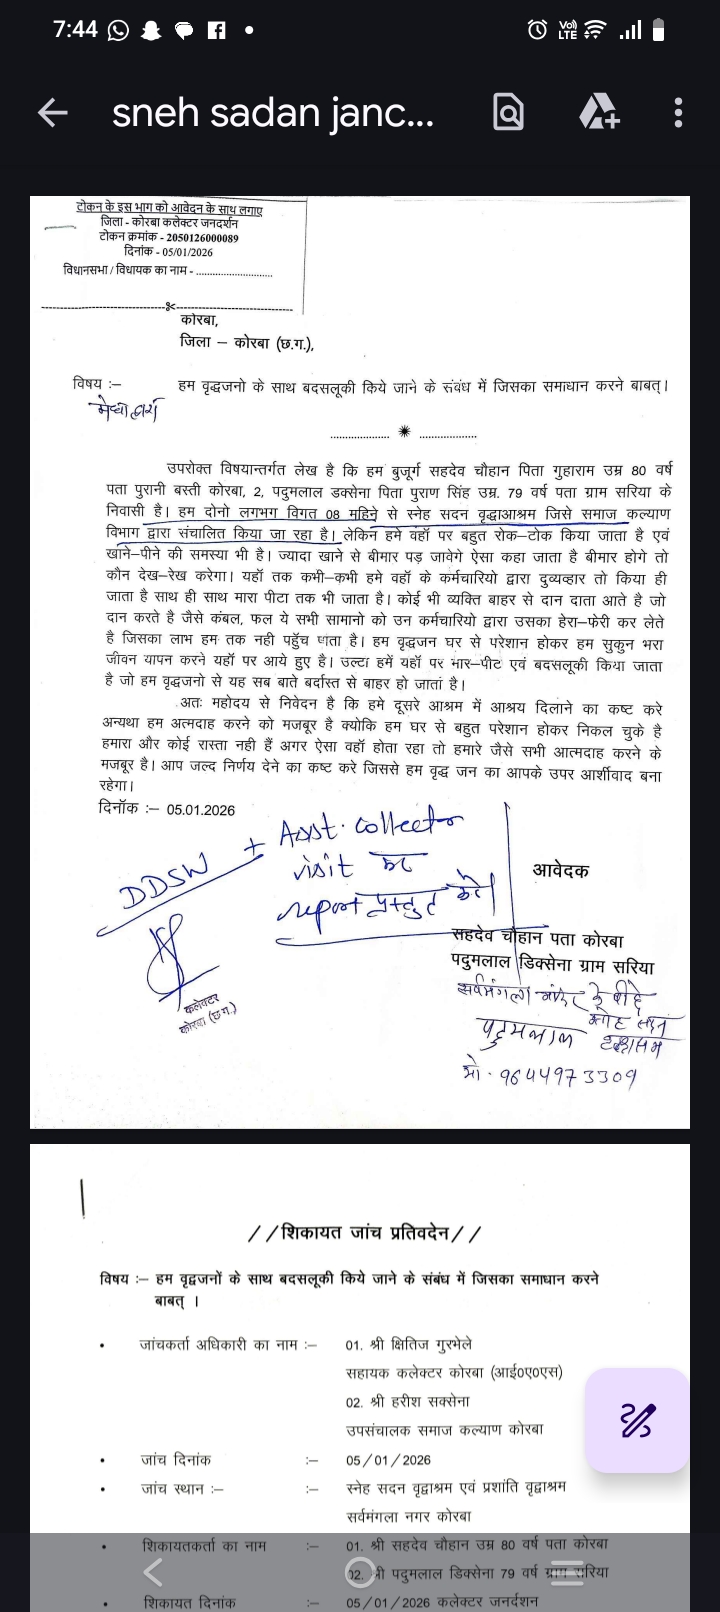 7:44
VoD LTE
sneh sadan janc...
टोकन के इस भाग को आवेदन के साथ लगाए
जिला - कोरबा कलेक्टर जनदर्शन
टोकन क्रमांक - 2050126000089
दिनांक - 05/01/2026
विधानसभा / विधायक का नाम - ............................
कोरबा,
जिला – कोरबा (छ.ग.),
विषय :– हम वृद्धजनो के साथ बदसलूकी किये जाने के संबंध में जिसका समाधान करने बाबत्।
उपरोक्त विषयान्तर्गत लेख है कि हम बुजूर्ग सहदेव चौहान पिता गुहाराम उम्र 80 वर्ष
पता पुरानी बस्ती कोरबा, 2, पदुमलाल डक्सेना पिता पुराण सिंह उम्र. 79 वर्ष पता ग्राम सरिया के
निवासी है। हम दोनो लगभग विगत 08 महिने से स्नेह सदन वृद्धाआश्रम जिसे समाज कल्याण
विभाग द्वारा संचालित किया जा रहा है। लेकिन हमे वंहॉ पर बहुत रोक–टोक किया जाता है एवं
खाने–पीने की समस्या भी है। ज्यादा खाने से बीमार पड़ जावेगे ऐसा कहा जाता है बीमार होगे तो
कौन देख–रेख करेगा। यहॉ तक कभी–कभी हमे वहॉ के कर्मचारियो द्वारा दुव्यव्हार तो किया ही
जाता है साथ ही साथ मारा पीटा तक भी जाता है। कोई भी व्यक्ति बाहर से दान दाता आते है जो
दान करते है जैसे कंबल, फल ये सभी सामानो को उन कर्मचारियो द्वारा उसका हेरा–फेरी कर लेते
है जिसका लाभ हम तक नही पहुँच पाता है। हम वृद्धजन घर से परेशान होकर हम सुकुन भरा
जीवन यापन करने यहॉ पर आये हुए है। उल्टा हमें यहॉ पर मार–पीट एवं बदसलूकी किया जाता
है जो हम वृद्धजनो से यह सब बाते बर्दास्त से बाहर हो जाता है।
अतः महोदय से निवेदन है कि हमे दूसरे आश्रम में आश्रय दिलाने का कष्ट करे
अन्यथा हम अत्मदाह करने को मजबूर है क्योकि हम घर से बहुत परेशान होकर निकल चुके है
हमारा और कोई रास्ता नही हैं अगर ऐसा वहॉ होता रहा तो हमारे जैसे सभी आत्मदाह करने के
मजबूर है। आप जल्द निर्णय देने का कष्ट करे जिससे हम वृद्ध जन का आपके उपर आर्शीवाद बना
रहेगा।
दिनॉक :– 05.01.2026
DDSW + Asst. collector
visit कर
report प्रस्तुत करें
आवेदक
कलेक्टर
कोरबा (छ.ग.)
सहदेव चौहान पता कोरबा
पदुमलाल डिक्सेना ग्राम सरिया
पदुमलाल
मो. 9644973309
//शिकायत जांच प्रतिवदेन//
विषय :– हम वृद्वजनों के साथ बदसलूकी किये जाने के संबंध में जिसका समाधान करने
बाबत् ।
• जांचकर्ता अधिकारी का नाम :– 01. श्री क्षितिज गुरभेले
सहायक कलेक्टर कोरबा (आई०ए०एस)
02. श्री हरीश सक्सेना
उपसंचालक समाज कल्याण कोरबा
• जांच दिनांक :– 05/01/2026
• जांच स्थान :– :– स्नेह सदन वृद्वाश्रम एवं प्रशांति वृद्वाश्रम
सर्वमंगला नगर कोरबा
• शिकायतकर्ता का नाम :– 01. श्री सहदेव चौहान उम्र 80 वर्ष पता कोरबा
02. श्री पदुमलाल डिक्सेना 79 वर्ष ग्राम सरिया
• शिकायत दिनांक :– 05/01/2026 कलेक्टर जनर्दशन